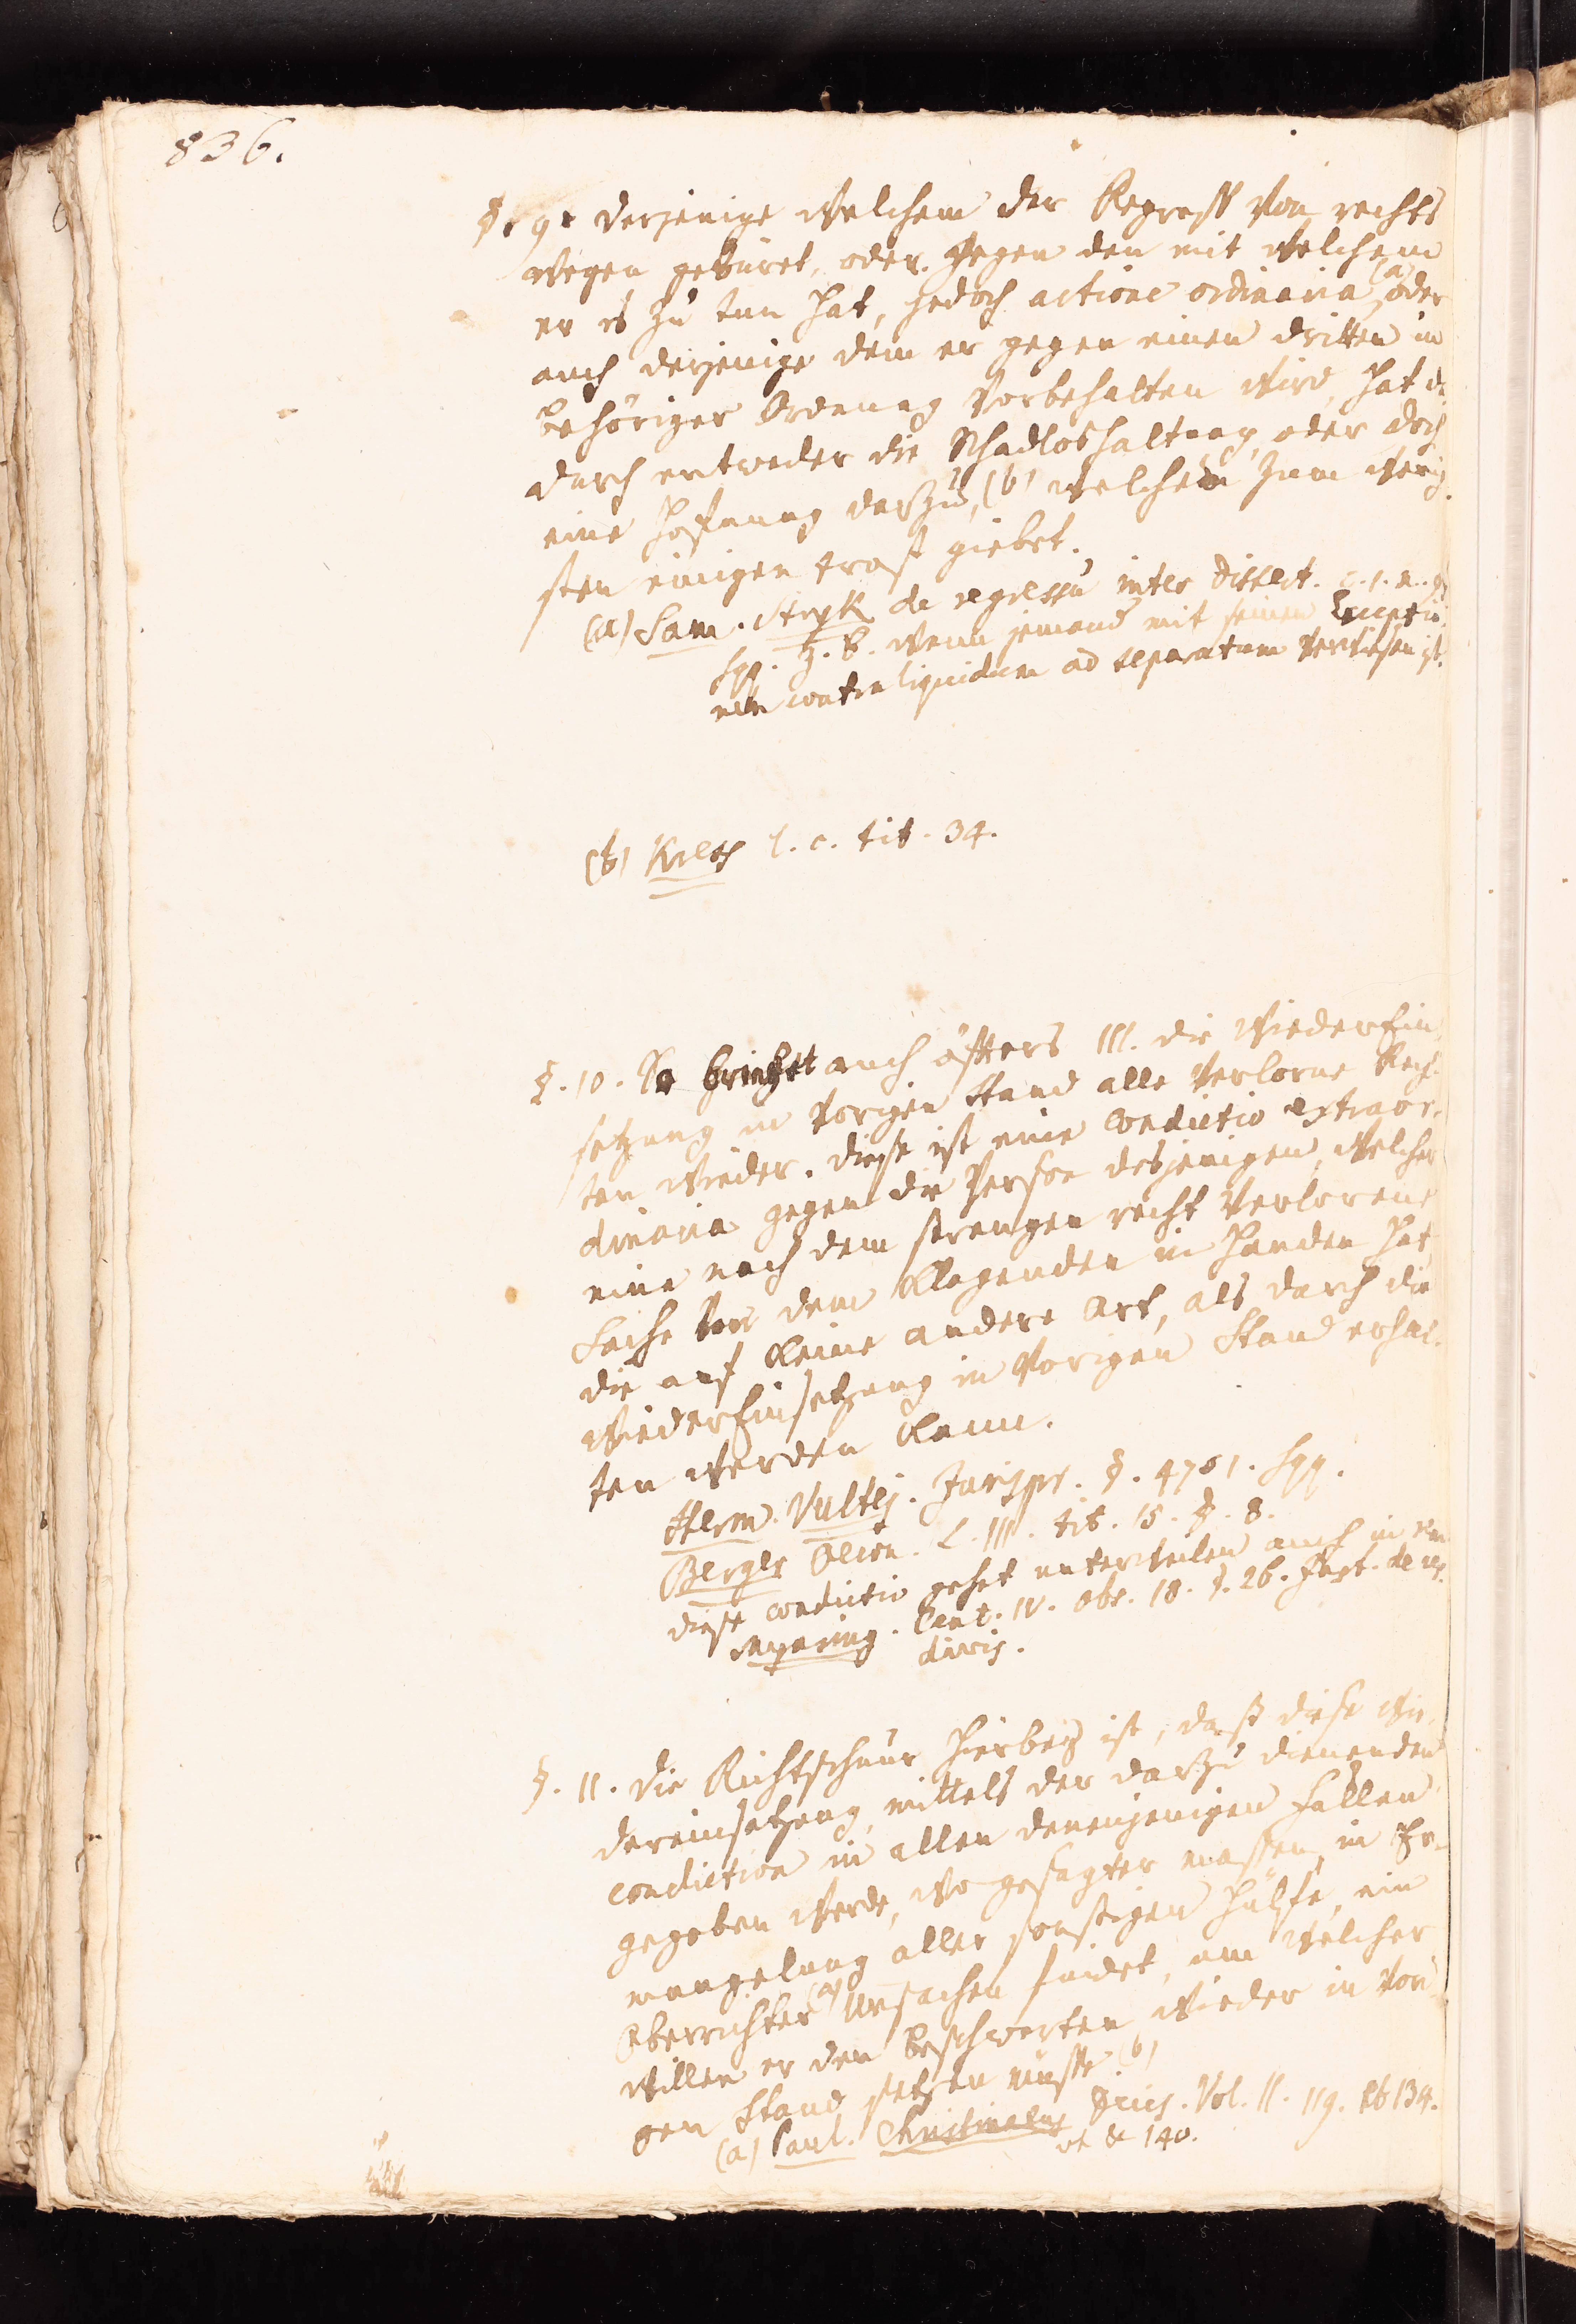 836.
§. 9. Derjenige welchem der Regress von rechts
wegen gebüret, oder gegen den mit welchem
er es zu tun hat, jedoch actione ordinaria, (a) oder
auch derjenige dem er gegen einen dritten in
behöriger Ordnung vorbehalten wird, hat da
durch entweder die Schadloshaltung, oder doch
eine Hofnung darzu, (b) welche zum wenig
sten einigen trost giebet.
(a) Sam. Stryk de regressu inter Dissert. c. 1. n.
sqq. z. B. wenn jemand mit seinen Exceptio
nen contra liquidum ad separatum verwiesen ist.
(b) Kress l. c. tit. 34.
§. 10. So bringet auch öfters III. die Wiederein
setzung in vorigen Stand alle verlorne Rech
ten wieder. Diese ist eine condictio extraor-
dinaria gegen die Person desjenigen, welcher
eine nach dem strengen recht verlorene
Sache von dem Klagenden in Handen hat
die auf keine andere Art, als durch die
Wiedereinsetzung in vorigen Stand erhal-
ten werden kann.
Herm. Vultej. Jurispr. §. 4751. sqq.
Berger Oecon. L. III. tit. 15. §. 8.
diese condictio gehet unterweilen auch in rem
Mevius. Cent. IV. Obs. 18. §. 26. Inst. de rer.
divis.
§. 11. Die Richtschnur hierbey ist, daß diese Wie
dereinsetzung, mittels der darzu dienenden
condiction in allen denenjenigen fällen
gegeben werde, wo gesagter massen, in Er-
mangelung aller sonstigen Hülfe, ein
Oberrichter (a) Ursachen findet, um welcher
willen er den beschwerten wieder in vori
gen Stand setzen müsse. (b)
(a) Paul. Christinaeus Decis. Vol. II. 119. et 134.
et 140.